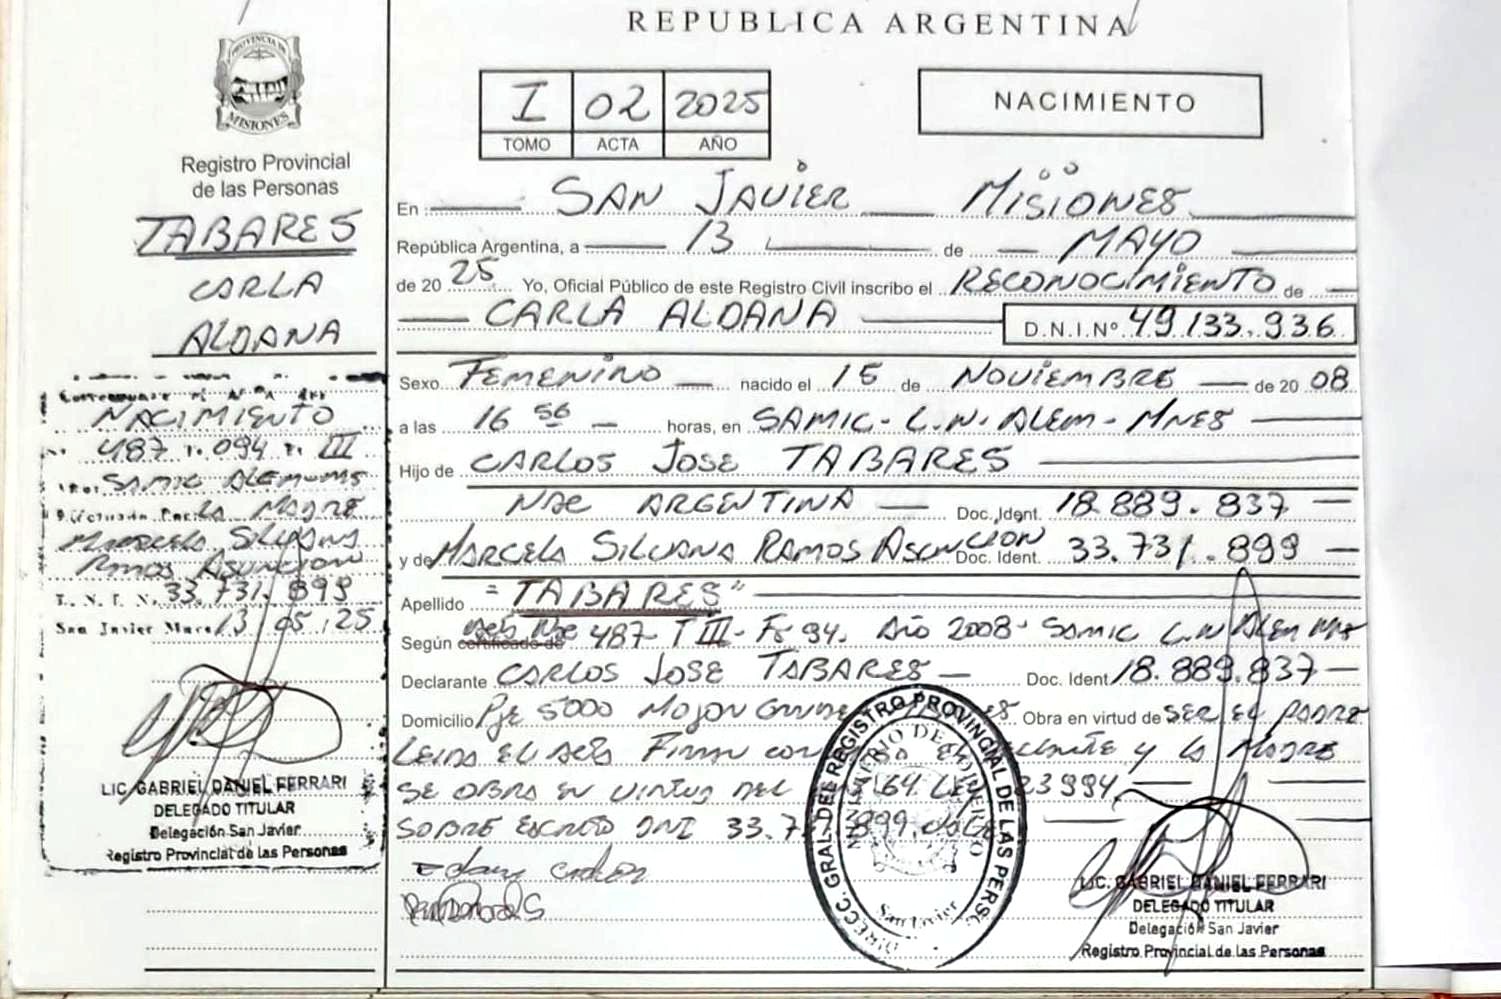 REPUBLICA ARGENTINA
PROVINCIA DE
MISIONES
Registro Provincial
de las Personas
TABARES
CARLA
ALDANA
I 02 2025
TOMO ACTA AÑO
NACIMIENTO
En SAN JAVIER MISIONES
República Argentina, a 13 de MAYO
de 20 25 Yo, Oficial Público de este Registro Civil inscribo el RECONOCIMIENTO de
CARLA ALDANA D.N.I.Nº 49.133.936
Sexo FEMENINO nacido el 15 de NOVIEMBRE de 20 08
a las 16 56 horas, en SAMIC - L.N. ALEM - MNES
Hijo de CARLOS JOSE TABARES
NAC ARGENTINA Doc. Ident. 18.889.837
y de MARCELA SILVANA RAMOS ASUNCION Doc. Ident. 33.731.899
Apellido "TABARES"
Según certificado de 487 - T III - Fº 94. Año 2008 - SAMIC L.N ALEM
Declarante CARLOS JOSE TABARES Doc. Ident 18.889.837
Domicilio Pje 5000 MOJON Obra en virtud de SER EL PADRE
LEIDA EL Firman y LA MADRE
SE OBRA EN VIRTUD DEL 64. LEY 23994
SOBRE ESCRITO DNI 33.7 899.
NACIMIENTO
487 T. 094 F. III
SAMIC ALEM
LA MADRE
MARCELA SILVANA
RAMOS ASUNCION
D. N. I. N. 33.731.899
San Javier 13 05 25
LIC. GABRIEL DANIEL FERRARI
DELEGADO TITULAR
Delegación San Javier
Registro Provincial de las Personas
DIRECC. GRAL. DEL REGISTRO PROVINCIAL DE LAS PERS
MINISTERIO DE GOBIERNO
San Javier
LIC. GABRIEL DANIEL FERRARI
DELEGADO TITULAR
Delegación San Javier
Registro Provincial de las Personas